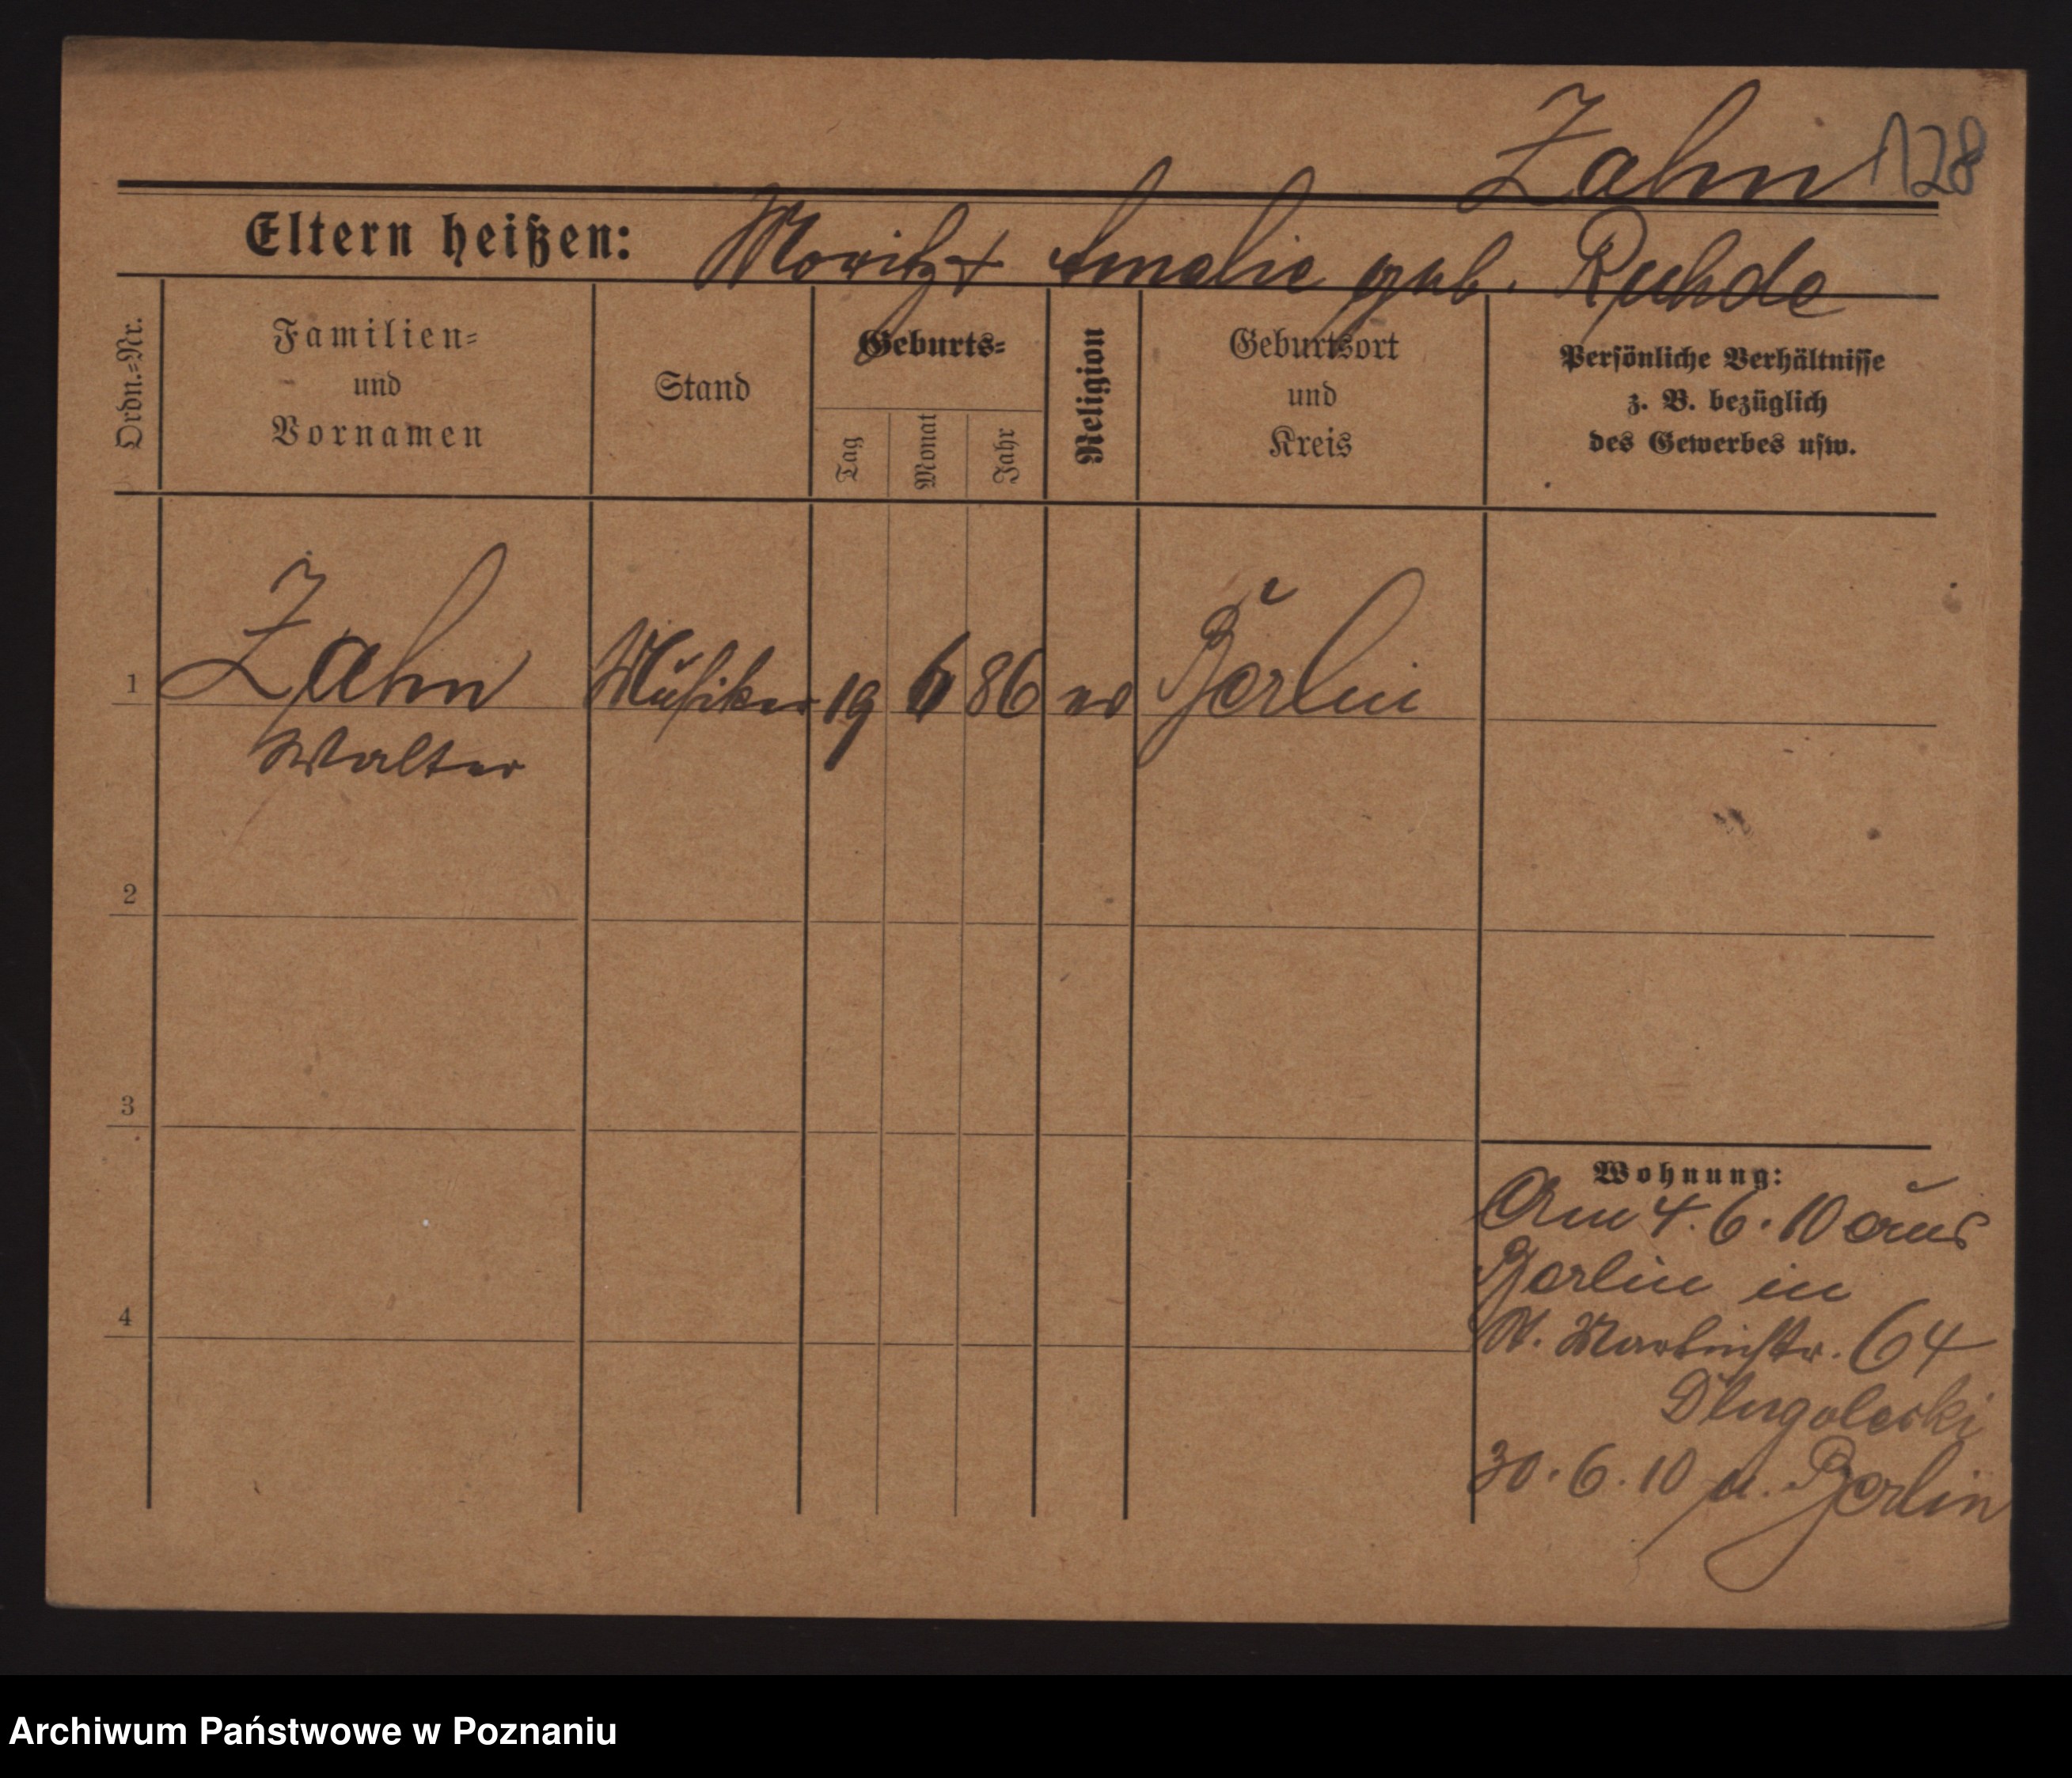 Zahn 1128
Eltern heißen: Moritz + Amalie geb. Ruhde
Ordn.=Nr.
Familien=
und
Vornamen
Stand
Geburts=
Tag
Monat
Jahr
Religion
Geburtsort
und
Kreis
Persönliche Verhältnisse
z. B. bezüglich
des Gewerbes usw.
1 Zahn Musiker 19 6 86 ev Berlin
Walter
2
3
4
Wohnung:
Am 4. 6. 10 aus
Berlin in
St. Martinstr. 64
30. 6. 10 n. Berlin
Archiwum Państwowe w Poznaniu